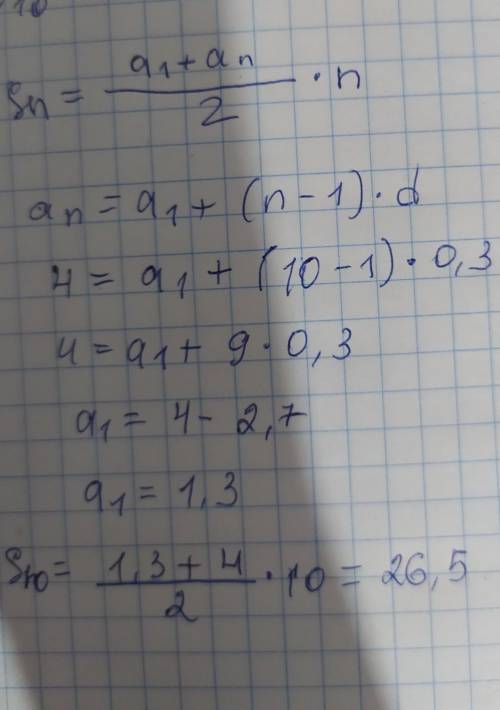 10
Sn = (a₁ + an) / 2 · n
an = a₁ + (n - 1) · d
4 = a₁ + (10 - 1) · 0,3
4 = a₁ + 9 · 0,3
a₁ = 4 - 2,7
a₁ = 1,3
S₁₀ = (1,3 + 4) / 2 · 10 = 26,5